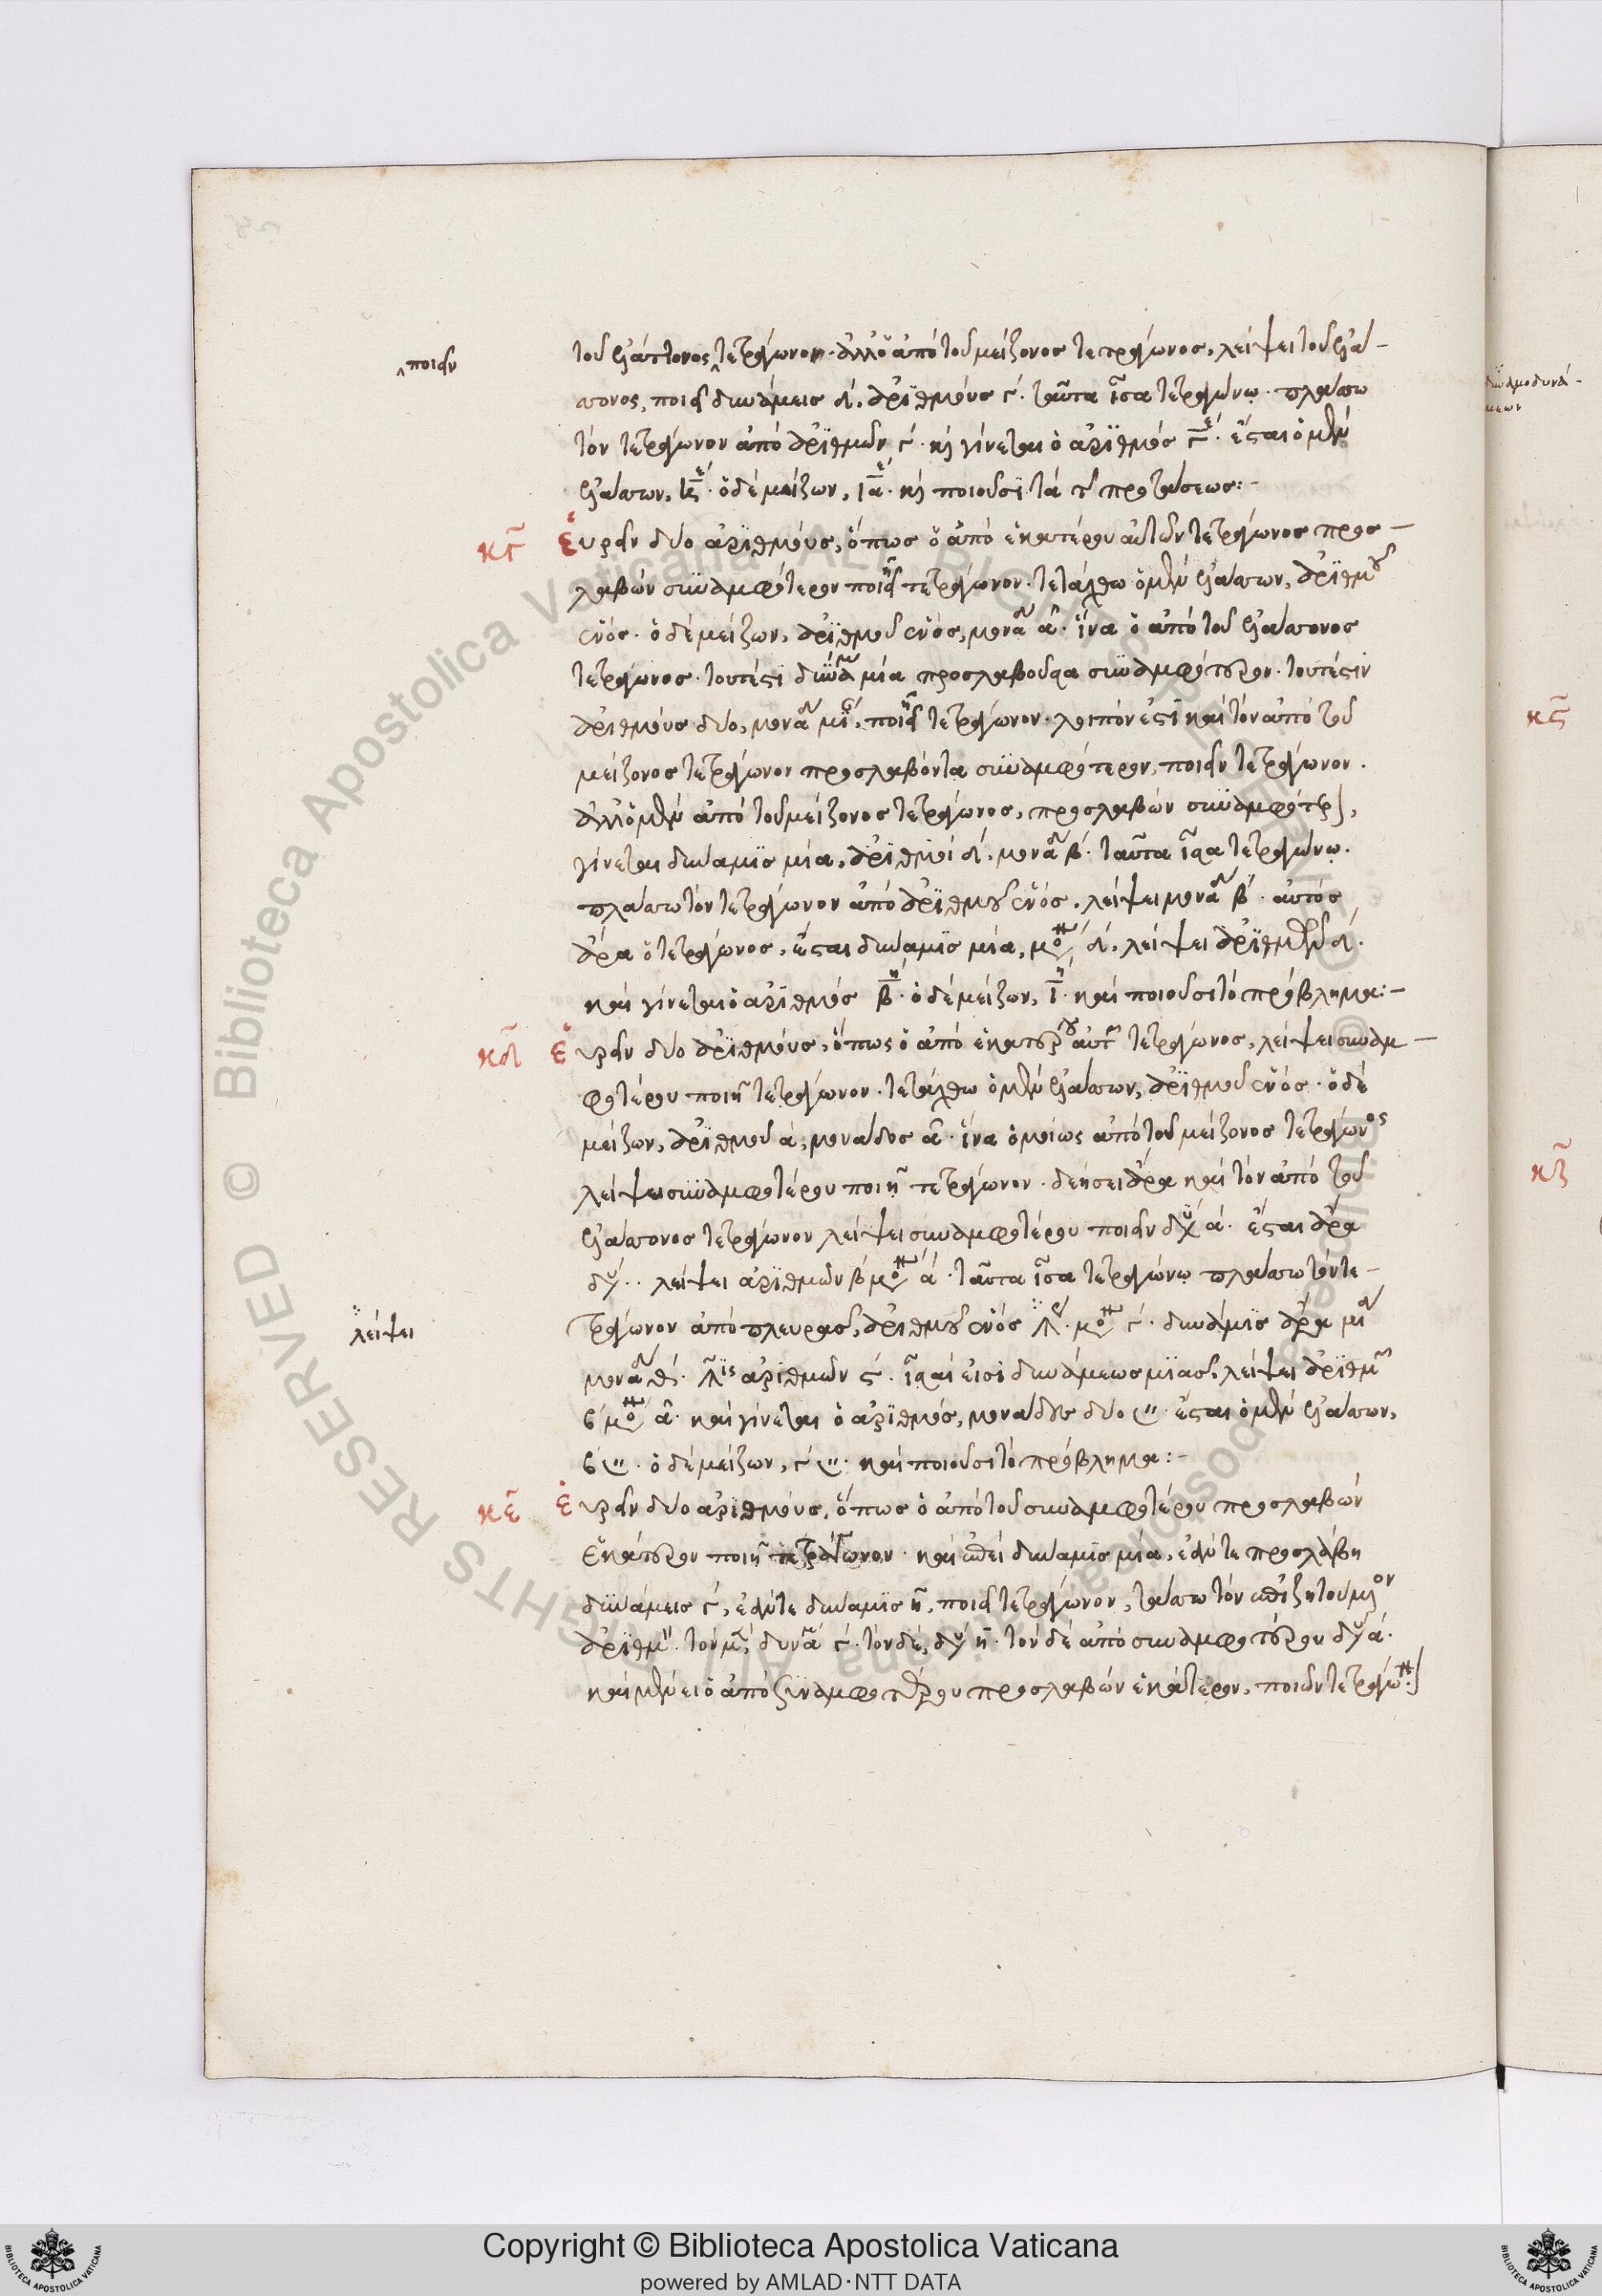 ποιεῖν
τοῦ ἐλάττονος τετράγωνον. ἀλλ' ὁ ἀπὸ τοῦ μείζονος τετράγωνος, λείψει τοῦ ἐλάσ-
σονος, ποιεῖ δυνάμεις δ. ἀριθμοὺς γ. ταῦτα ἴσα τετραγώνω. πλάσσω
τὸν τετράγωνον ἀπὸ ἀριθμῶν γ. κὴ γίνεται ὁ ἀριθμὸς ϛ̅ ε. ἔσται ὁ μὲν
ἐλάσσων, ε. ὁ δὲ μείζων, ια ε. κὴ ποιοῦσι τὰ τῆς προτάσεως:-
κγ Εὑρεῖν δύο ἀριθμοὺς, ὅπως ὁ ἀπὸ ἑκατέρου αὐτῶν τετράγωνος προσ-
λαβὼν συναμφότερον ποιῇ τετράγωνον. τετάχθω ὁ μὲν ἐλάσσων, ἀριθμοῦ
ἑνός. ὁ δὲ μείζων, ἀριθμοῦ ἑνός, μονάδος α. ἵνα ὁ ἀπὸ τοῦ ἐλάσσονος
τετράγωνος. τουτέστι δύναμις μία προσλαβοῦσα συναμφότερον. τουτέστιν
ἀριθμοὺς δύο, μονάδα μίαν, ποιῇ τετράγωνον. λοιπόν ἐστι καὶ τὸν ἀπὸ τοῦ
μείζονος τετράγωνον προσλαβόντα συναμφότερον, ποιεῖν τετράγωνον.
ἀλλ' ὁ μὲν ἀπὸ τοῦ μείζονος τετράγωνος, προσλαβὼν συναμφότερον,
γίνεται δύναμις μία, ἀριθμοὶ δ, μονάδες β. ταῦτα ἴσα τετραγώνω.
πλάσσω τὸν τετράγωνον ἀπὸ ἀριθμοῦ ἑνός, λείψει μονάδων β. αὐτὸς
ἄρα ὁ τετράγωνος, ἔσται δύναμις μία, μο δ, λείψει ἀριθμῶν δ.
καὶ γίνεται ὁ ἀριθμὸς β η. ὁ δὲ μείζων, ι η. καὶ ποιοῦσι τὸ πρόβλημα:-
κδ Εὑρεῖν δύο ἀριθμοὺς, ὅπως ὁ ἀπὸ ἑκατέρου αὐτῶν τετράγωνος, λείψει συναμ-
φοτέρου ποιῇ τετράγωνον. τετάχθω ὁ μὲν ἐλάσσων, ἀριθμοῦ ἑνός. ὁ δὲ
μείζων, ἀριθμοῦ α, μονάδος α. ἵνα ὁμοίως ἀπὸ τοῦ μείζονος τετράγωνος
λείψει συναμφοτέρου ποιῇ τετράγωνον. δεήσει ἄρα καὶ τὸν ἀπὸ τοῦ
ἐλάσσονος τετράγωνον λείψει συναμφοτέρου ποιεῖν α. ἔσται ἄρα
δυ. λείψει ἀριθμῶν β μο α. ταῦτα ἴσα τετραγώνω πλάσσω τὸν τε-
λείψει
τράγωνον ἀπὸ πλευρᾶς, ἀριθμοῦ ἑνός λ μο γ. δύναμις ἄρα μία
μονάδες θ. λ ἀριθμῶν ϛ. ἴσαι εἰσὶ δυνάμεως μιᾶς, λείψει ἀριθμῶν
β μο α. καὶ γίνεται ὁ ἀριθμός, μονάδες δύο. ἔσται ὁ μὲν ἐλάσσων,
β. ὁ δὲ μείζων, γ. καὶ ποιοῦσι τὸ πρόβλημα:-
κε Εὑρεῖν δύο ἀριθμοὺς, ὅπως ὁ ἀπὸ τοῦ συναμφοτέρου προσλαβὼν
ἑκάτερον ποιῇ τετράγωνον. καὶ ἐπεὶ δύναμις μία, ἐάν τε προσλάβη
δυνάμεις γ, ἐάν τε δυνάμεις η, ποιεῖ τετράγωνον, τάσσω τὸν ἐπιζητούμενον
ἀριθμῶν. τὸν μὲν, δυνα γ. τὸν δὲ, δυ η. τὸν δὲ ἀπὸ συναμφοτέρου δυ α.
καὶ μένει ὁ ἀπὸ συναμφοτέρου προσλαβὼν ἑκάτερον, ποιῶν τετράγωνον
δύναμο δυνά-
μεων
κϛ
κζ
Copyright © Biblioteca Apostolica Vaticana
powered by AMLAD·NTT DATA